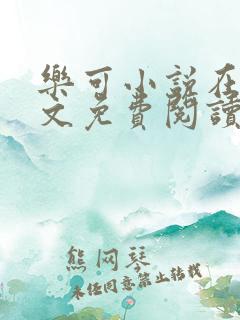 樂可小說在
文免費閱讀
熊网琴
未经同意禁止转载